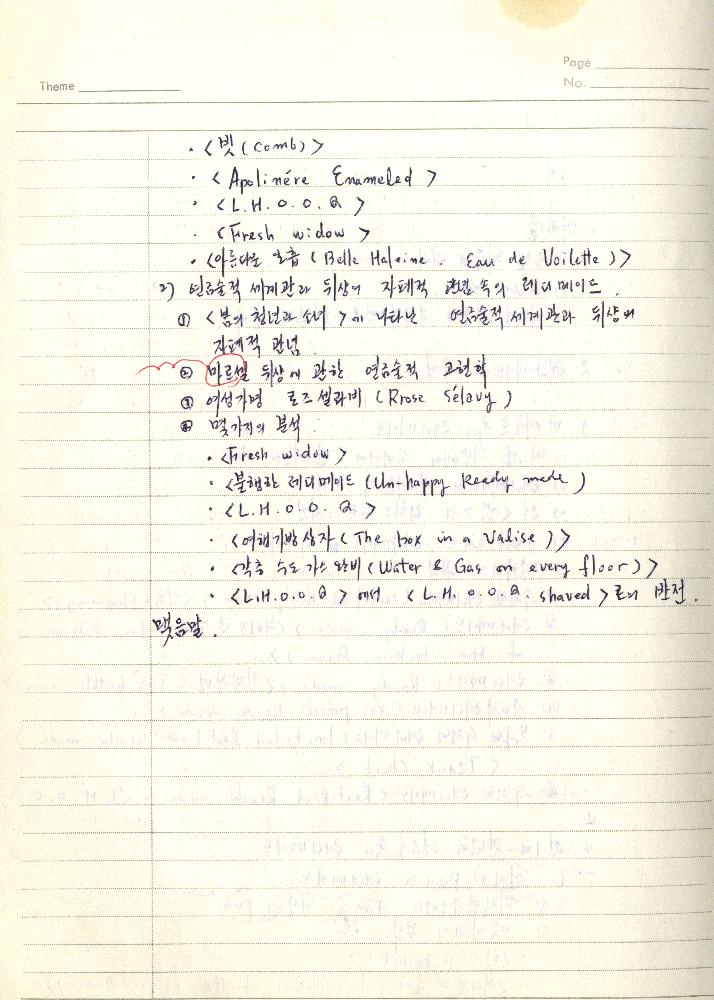 Theme
Page
No.
· <빗 (comb)>
· <Apolinére Enameled>
· <L.H.O.O.Q>
· <Fresh widow>
· <아름다운 호흡 (Belle Haleine. Eau de Voilette)>
2) 연금술적 세계관과 뒤샹의 자폐적 관념 속의 레디메이드.
① <봄의 청년과 소녀>에 나타난 연금술적 세계관과 뒤샹의
자폐적 관념.
② 마르셀 뒤샹에 관한 연금술적 고현학
③ 여성가명 로즈 셀라비 (Rrose Sélavy)
④ 몇가지의 분석.
· <Fresh widow>
· <불행한 레디메이드 (Un-happy Ready made)
· <L.H.O.O.Q>
· <여행가방상자 (The box in a Valise)>
· <각층 수도 가스 완비 (Water & Gas on every floor)>
· <L.H.O.O.Q>에서 <L.H.O.O.Q. shaved>로의 반전.
맺음말.